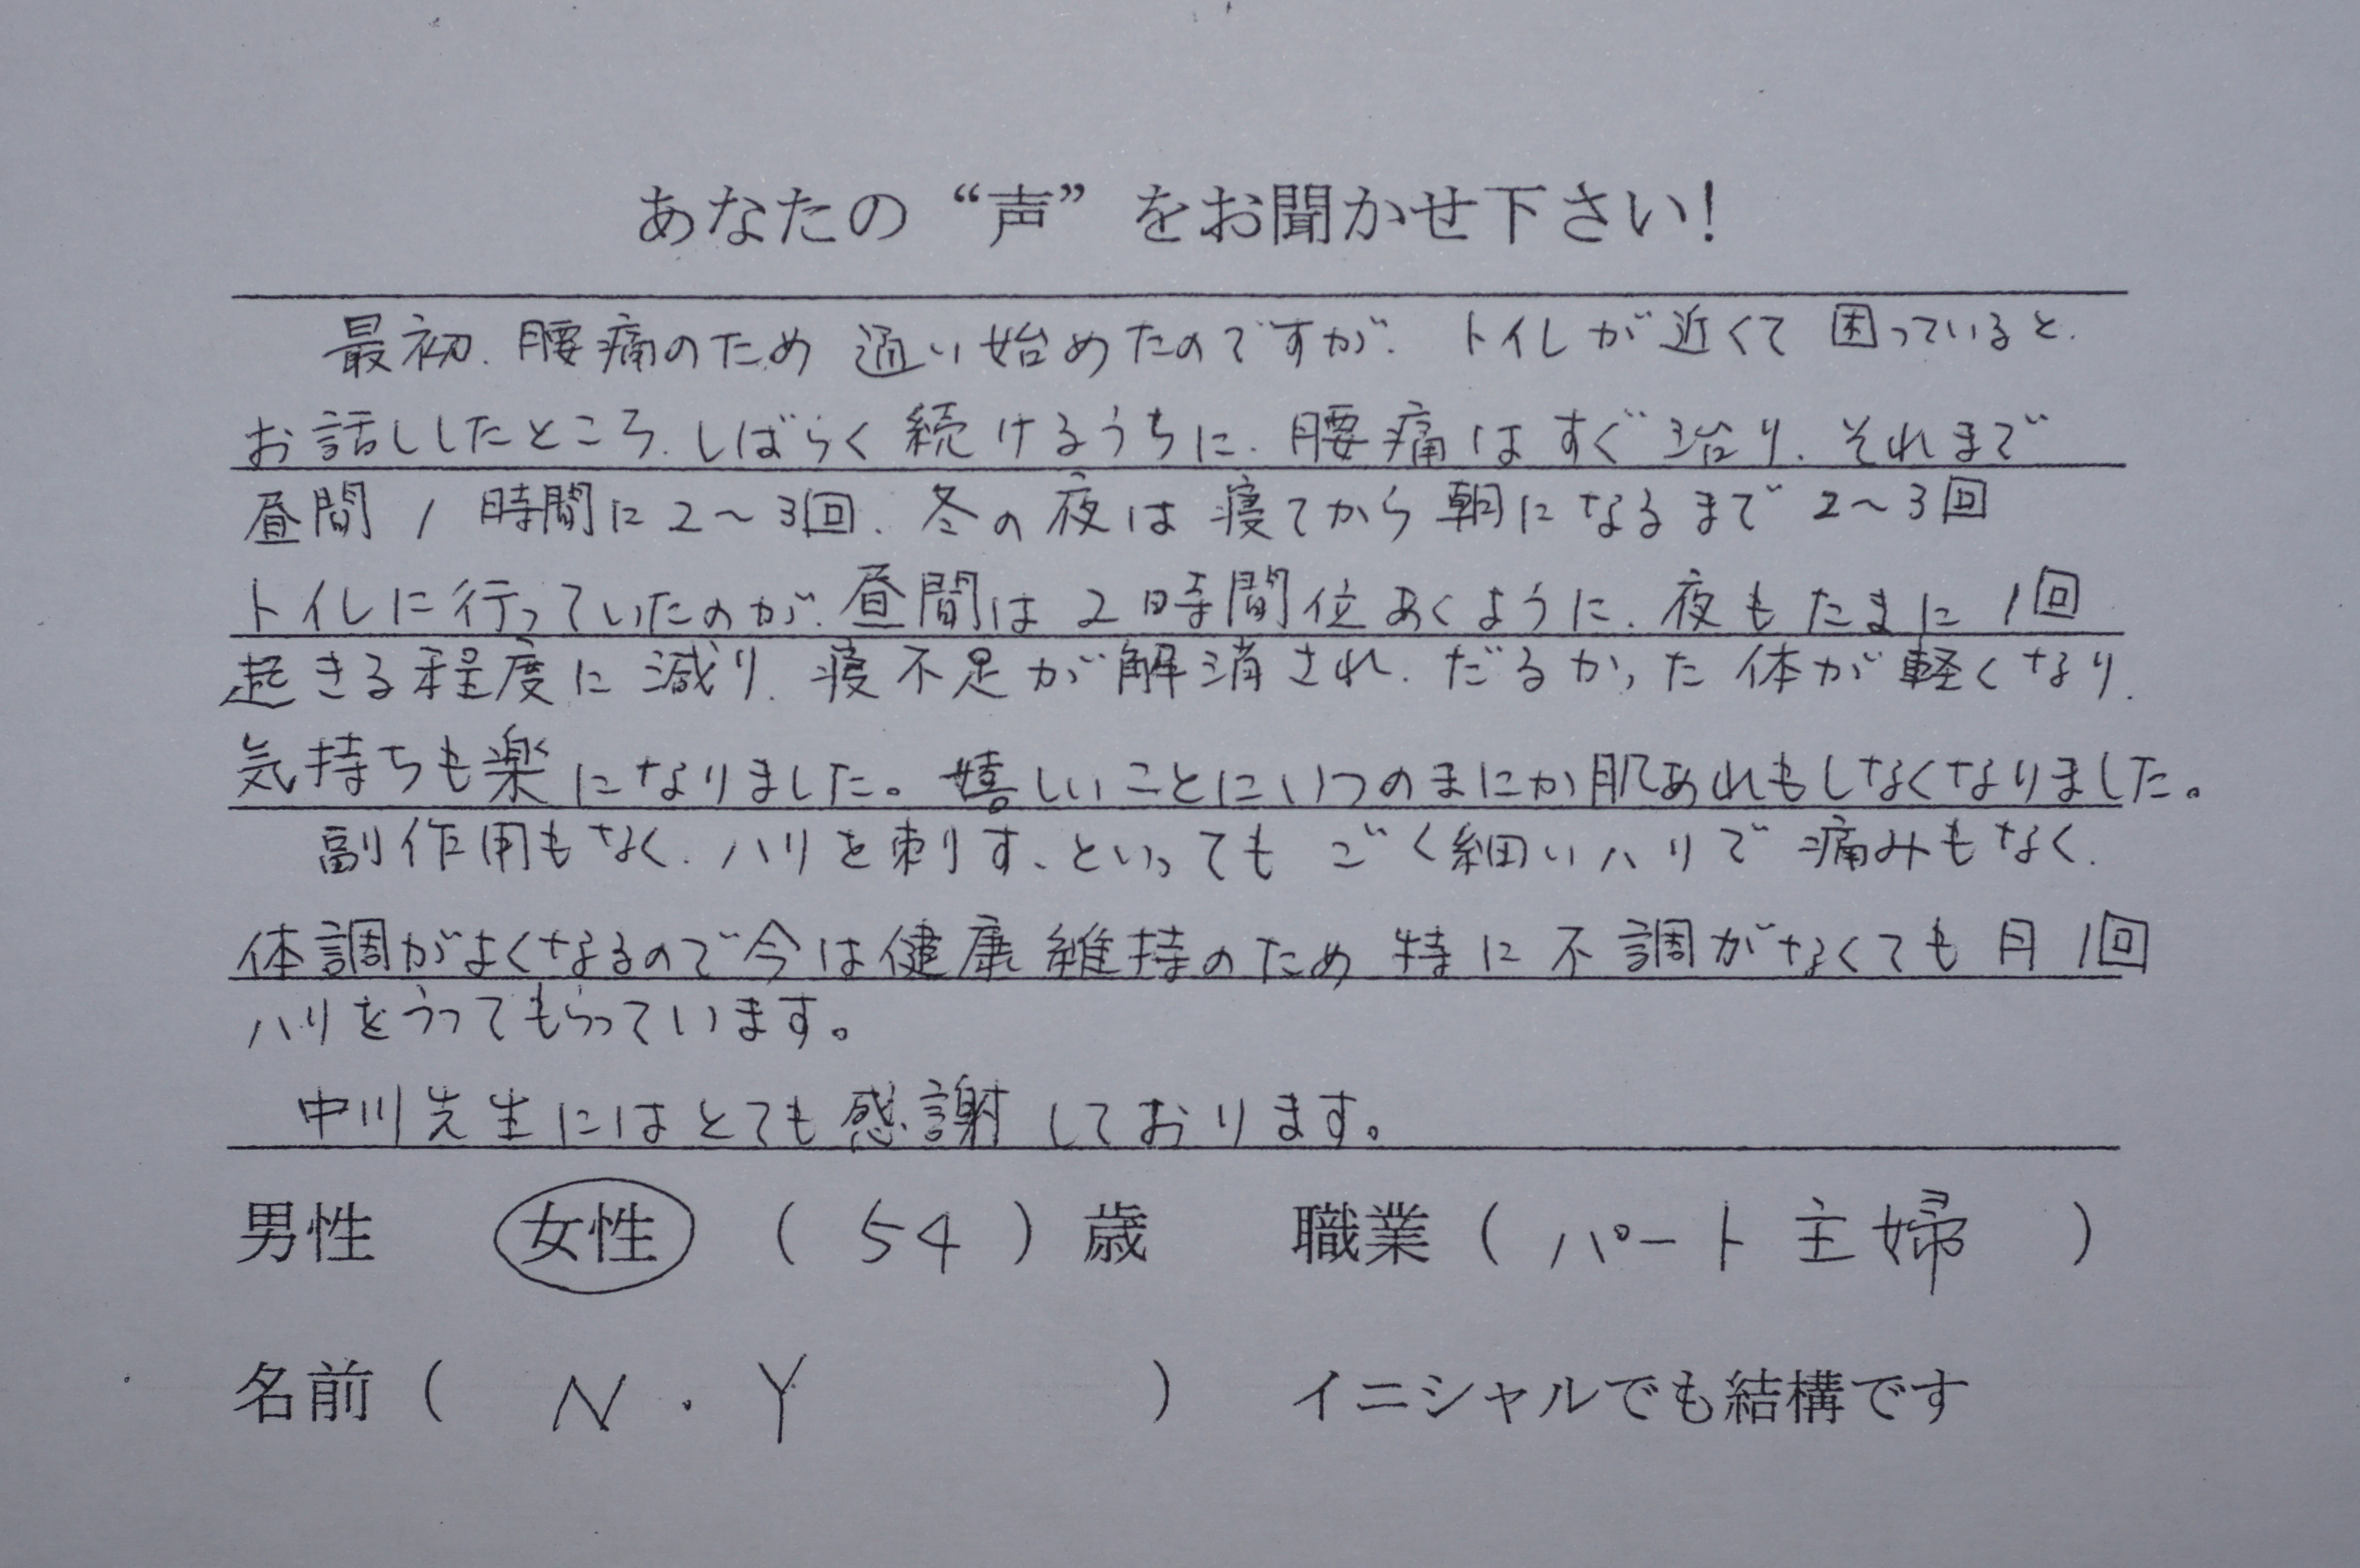 あなたの“声”をお聞かせ下さい!
最初、腰痛のため通い始めたのですが、トイレが近くて困っていると、
お話ししたところ、しばらく続けるうちに、腰痛はすぐ治り、それまで
昼間1時間に2〜3回、冬の夜は寝てから朝になるまで2〜3回
トイレに行っていたのが、昼間は2時間位あくように、夜もたまに1回
起きる程度に減り、寝不足が解消され、だるかった体が軽くなり、
気持ちも楽になりました。嬉しいことにいつのまにか肌あれもしなくなりました。
副作用もなく、ハリを刺す、といってもごく細いハリで痛みもなく、
体調がよくなるので今は健康維持のため特に不調がなくても月1回
ハリをうってもらっています。
中川先生にはとても感謝しております。
男性 女性 ( 54 ) 歳 職業 ( パート主婦 )
名前 ( N・Y ) イニシャルでも結構です